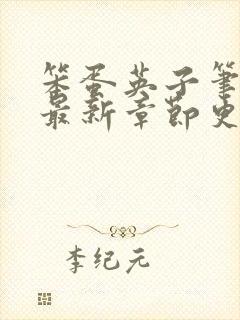 笨蛋英子笔
最新章節史
李纪元